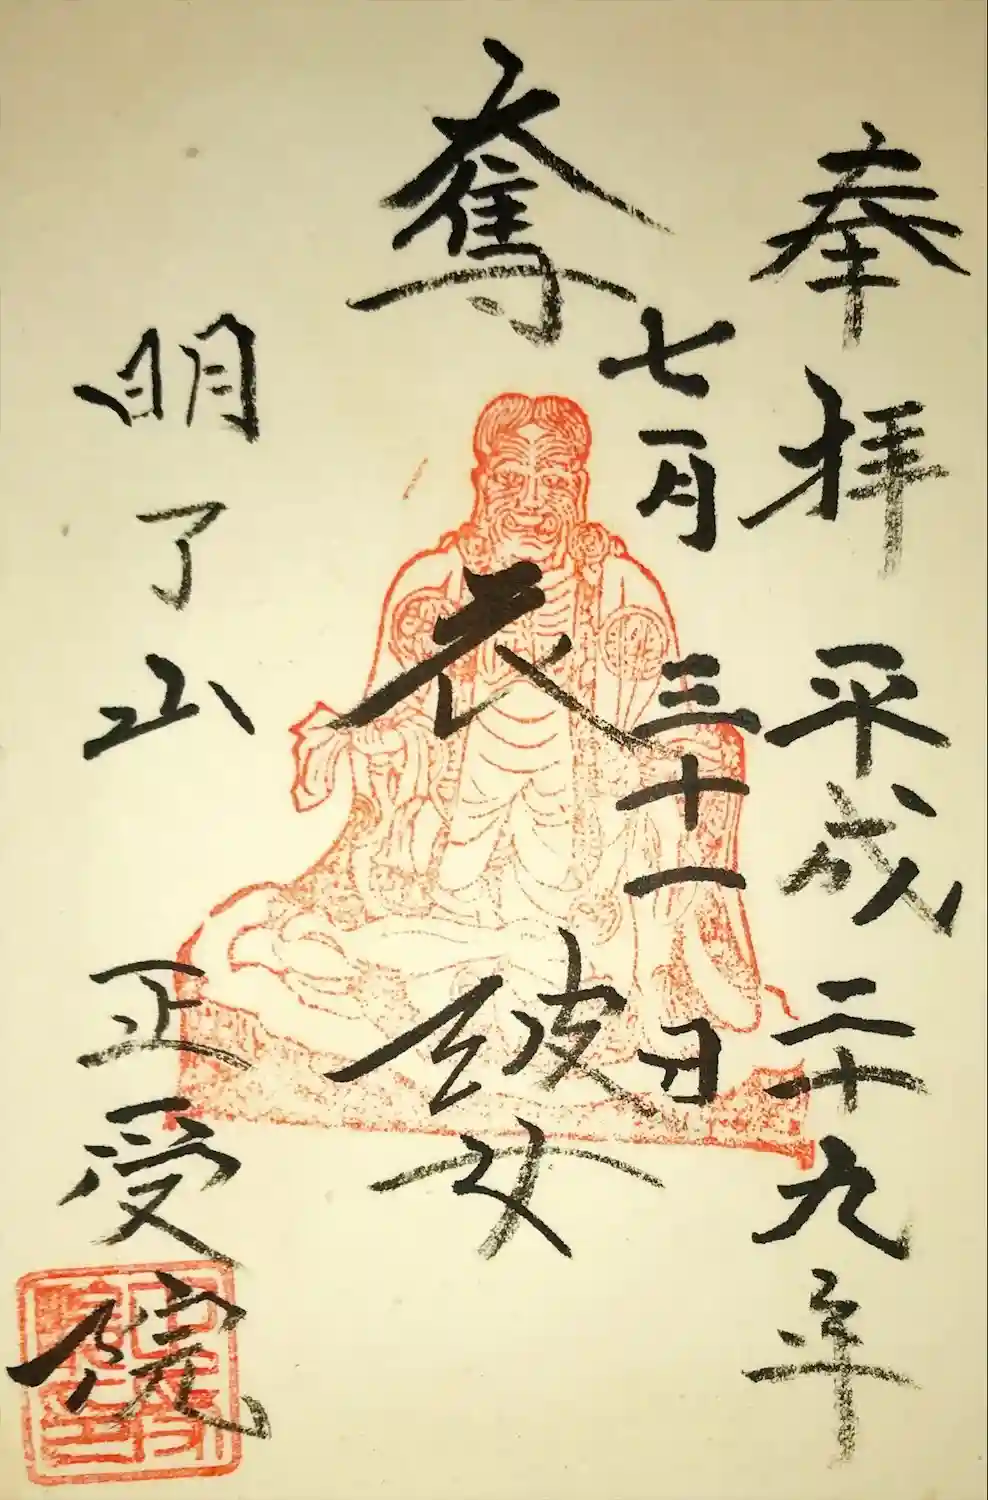 奉拝 平成二十九年
七月三十一日
奪衣婆
明了山 正受院